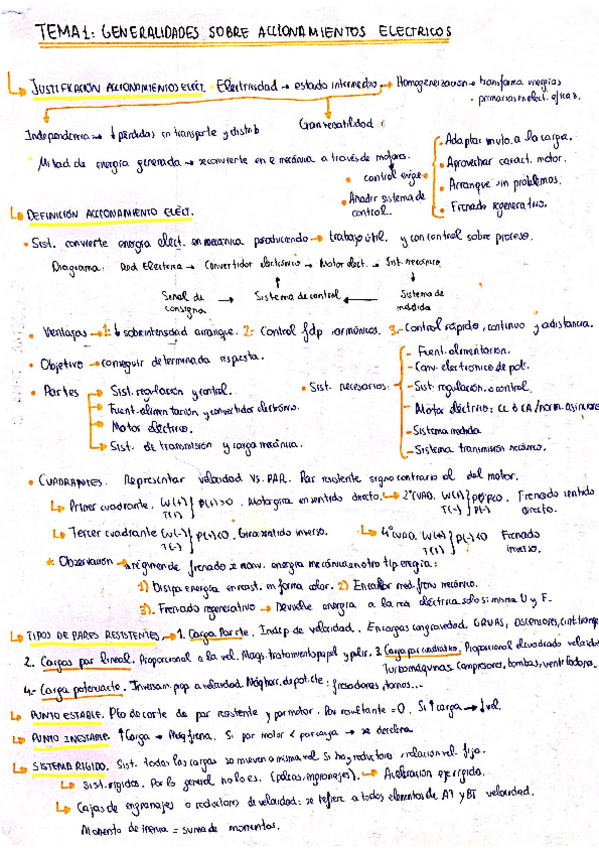 TEMA 1: GENERALIDADES SOBRE ACCIONAMIENTOS ELECTRICOS
JUSTIFICACIÓN ACCIONAMIENTOS ELÉCT. Electricidad → estado intermedio → Homogeneización → transforma energías
primarias en elect. eficaz.
Independencia → ↓ pérdidas en transporte y distrib
Gran versatilidad
Mitad de energía generada → reconvierte en e mecánica a través de motores.
control exige
Añadir sistema de control.
Adaptar a la carga.
Aprovechar caract. motor.
Arranque sin problemas.
Frenado regenerativo.
DEFINICIÓN ACCIONAMIENTO ELÉCT.
Sist. convierte energía eléct. en mecánica produciendo → trabajo útil. y con control sobre proceso.
Diagrama: Red Electrica → Convertidor electrónico → Motor eléct. → Sist. mecánico
Señal de consigna → Sistema de control ← Sistema de medida
Ventajas → 1: ↓ sobreintensidad arranque. 2: Control fdp armónicos. 3.- Control rápido, continuo y a distancia.
Objetivo → conseguir determinada respuesta.
Partes → Sist. regulación y control.
Fuent. alimentación y convertidor electrónico.
Motor eléctrico.
Sist. de transmisión y carga mecánica.
Sist. necesarios:
- Fuent. alimentacion.
- Conv. electronico de pot.
- Sist. regulación o control.
- Motor eléctrico: CC ó CA
- Sistema medida
- Sistema transmisión mecánico.
CUADRANTES. Representar velocidad VS. PAR. Par resistente signo contrario al del motor.
Primer cuadrante. W(+) T(+) } P(+)>0. Motor gira en sentido directo. → 2º CUAD. W(+) T(-) Frenado sentido directo.
Tercer cuadrante W(-) T(-) Gira sentido inverso. → 4º CUAD. Frenado inverso.
* Observación → régimen de frenado se conv. energía mecánica en otro tip energia:
1) Disipa energía en resist. en forma calor. 2) Encallar med. freno mecánico.
3). Frenado regenerativo → Devuelve energía a la red eléctrica solo si misma U y F.
TIPOS DE PARES RESISTENTES → 1. Carga Par cte. Indep de velocidad. En cargas con gravedad. GRUAS, ASCENSORES, cint. transp
2. Cargas par lineal. Proporcional a la vel. Maqs. tratamiento papel y pulir. 3. Carga par cuadratico. Proporcional al cuadrado velocidad
Turbomáquinas, Compresores, bombas, ventiladores.
4.- Carga potencia cte. Inversam. prop a velocidad. Máq. herr. de pot. cte: fresadores, tornos...
PUNTO ESTABLE. Pto de corte de par resistente y par motor. Par resultante = 0. Si ↑ carga → ↓ vel.
PUNTO INESTABLE. ↑ Carga → Maq frena. Si par motor < par carga → se decelera
SISTEMA RÍGIDO. Sist. todas las cargas se mueven a misma vel. Si hay reductora, relación vel. fija.
Sist. rígidos. Por lo general no lo es. (poleas, engranajes). → Aceleración eje rígido.
Cajas de engranajes o reductora de velocidad: se refiere a todos elementos de AV y BV velocidad.
Momento de inercia = suma de momentos.